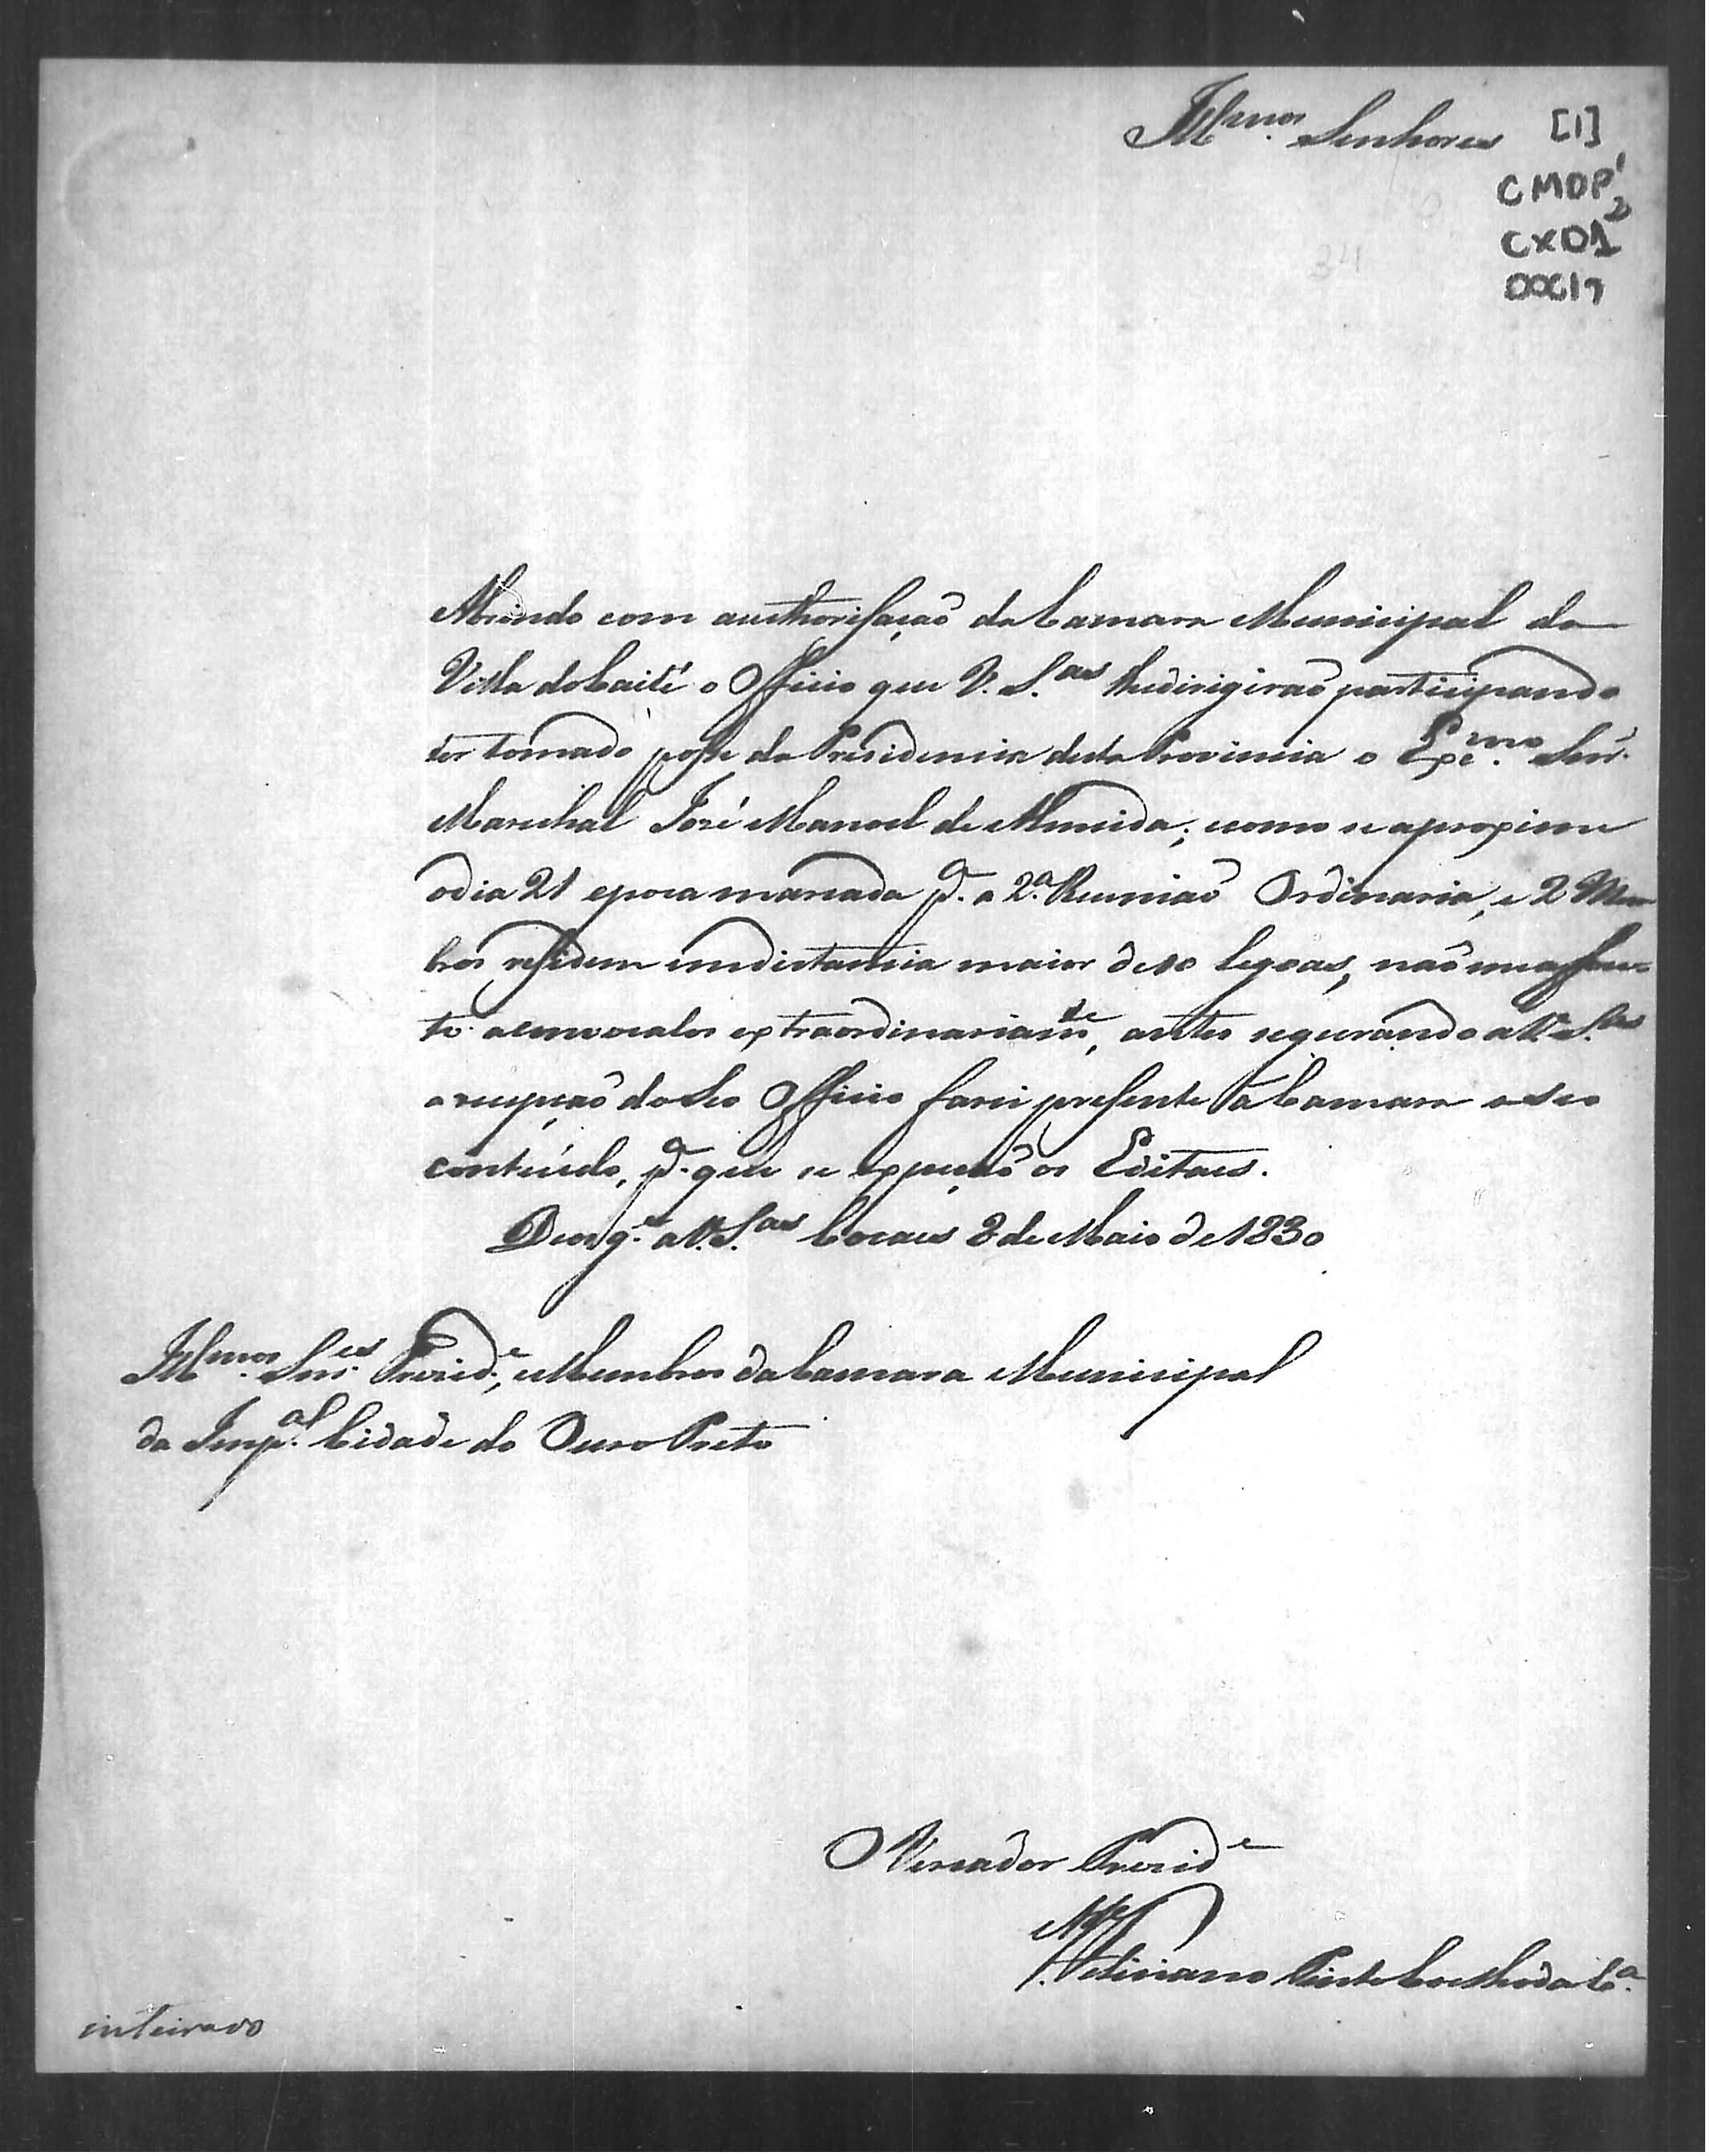 Ill.mos Senhores
[1]
CMOP
CX01
00017
Abrindo com authorisação da Camara Municipal da
Villa do Caité o Officio que V. S.as lhe dirigirão participando
ter tomado posse da Presidencia desta Provincia o Exc.mo Snr.
Marechal José Manoel de Almeida; como se aproxime
o dia 21 epoca marcada p.a a 2.a Reunião Ordinaria, e 2 Mem
bros residem em distancia maior de 10 legoas, não me affou-
to a convocalos extraordinariam.te, antes segurando a V. S.as
a recepção do Seo Officio farei presente á Camara o seo
conteúdo, p.a que se expeção os Editaes.
Deos g.e a V. S.as Cocaes 8 de Maio de 1830
Ill.mos Snr.es Prezid.e, e Membros da Camara Municipal
da Imp.al Cidade do Ouro Preto
O Vereador Prezid.e
Feliciano Pinto Coelho da C.a
inteirado